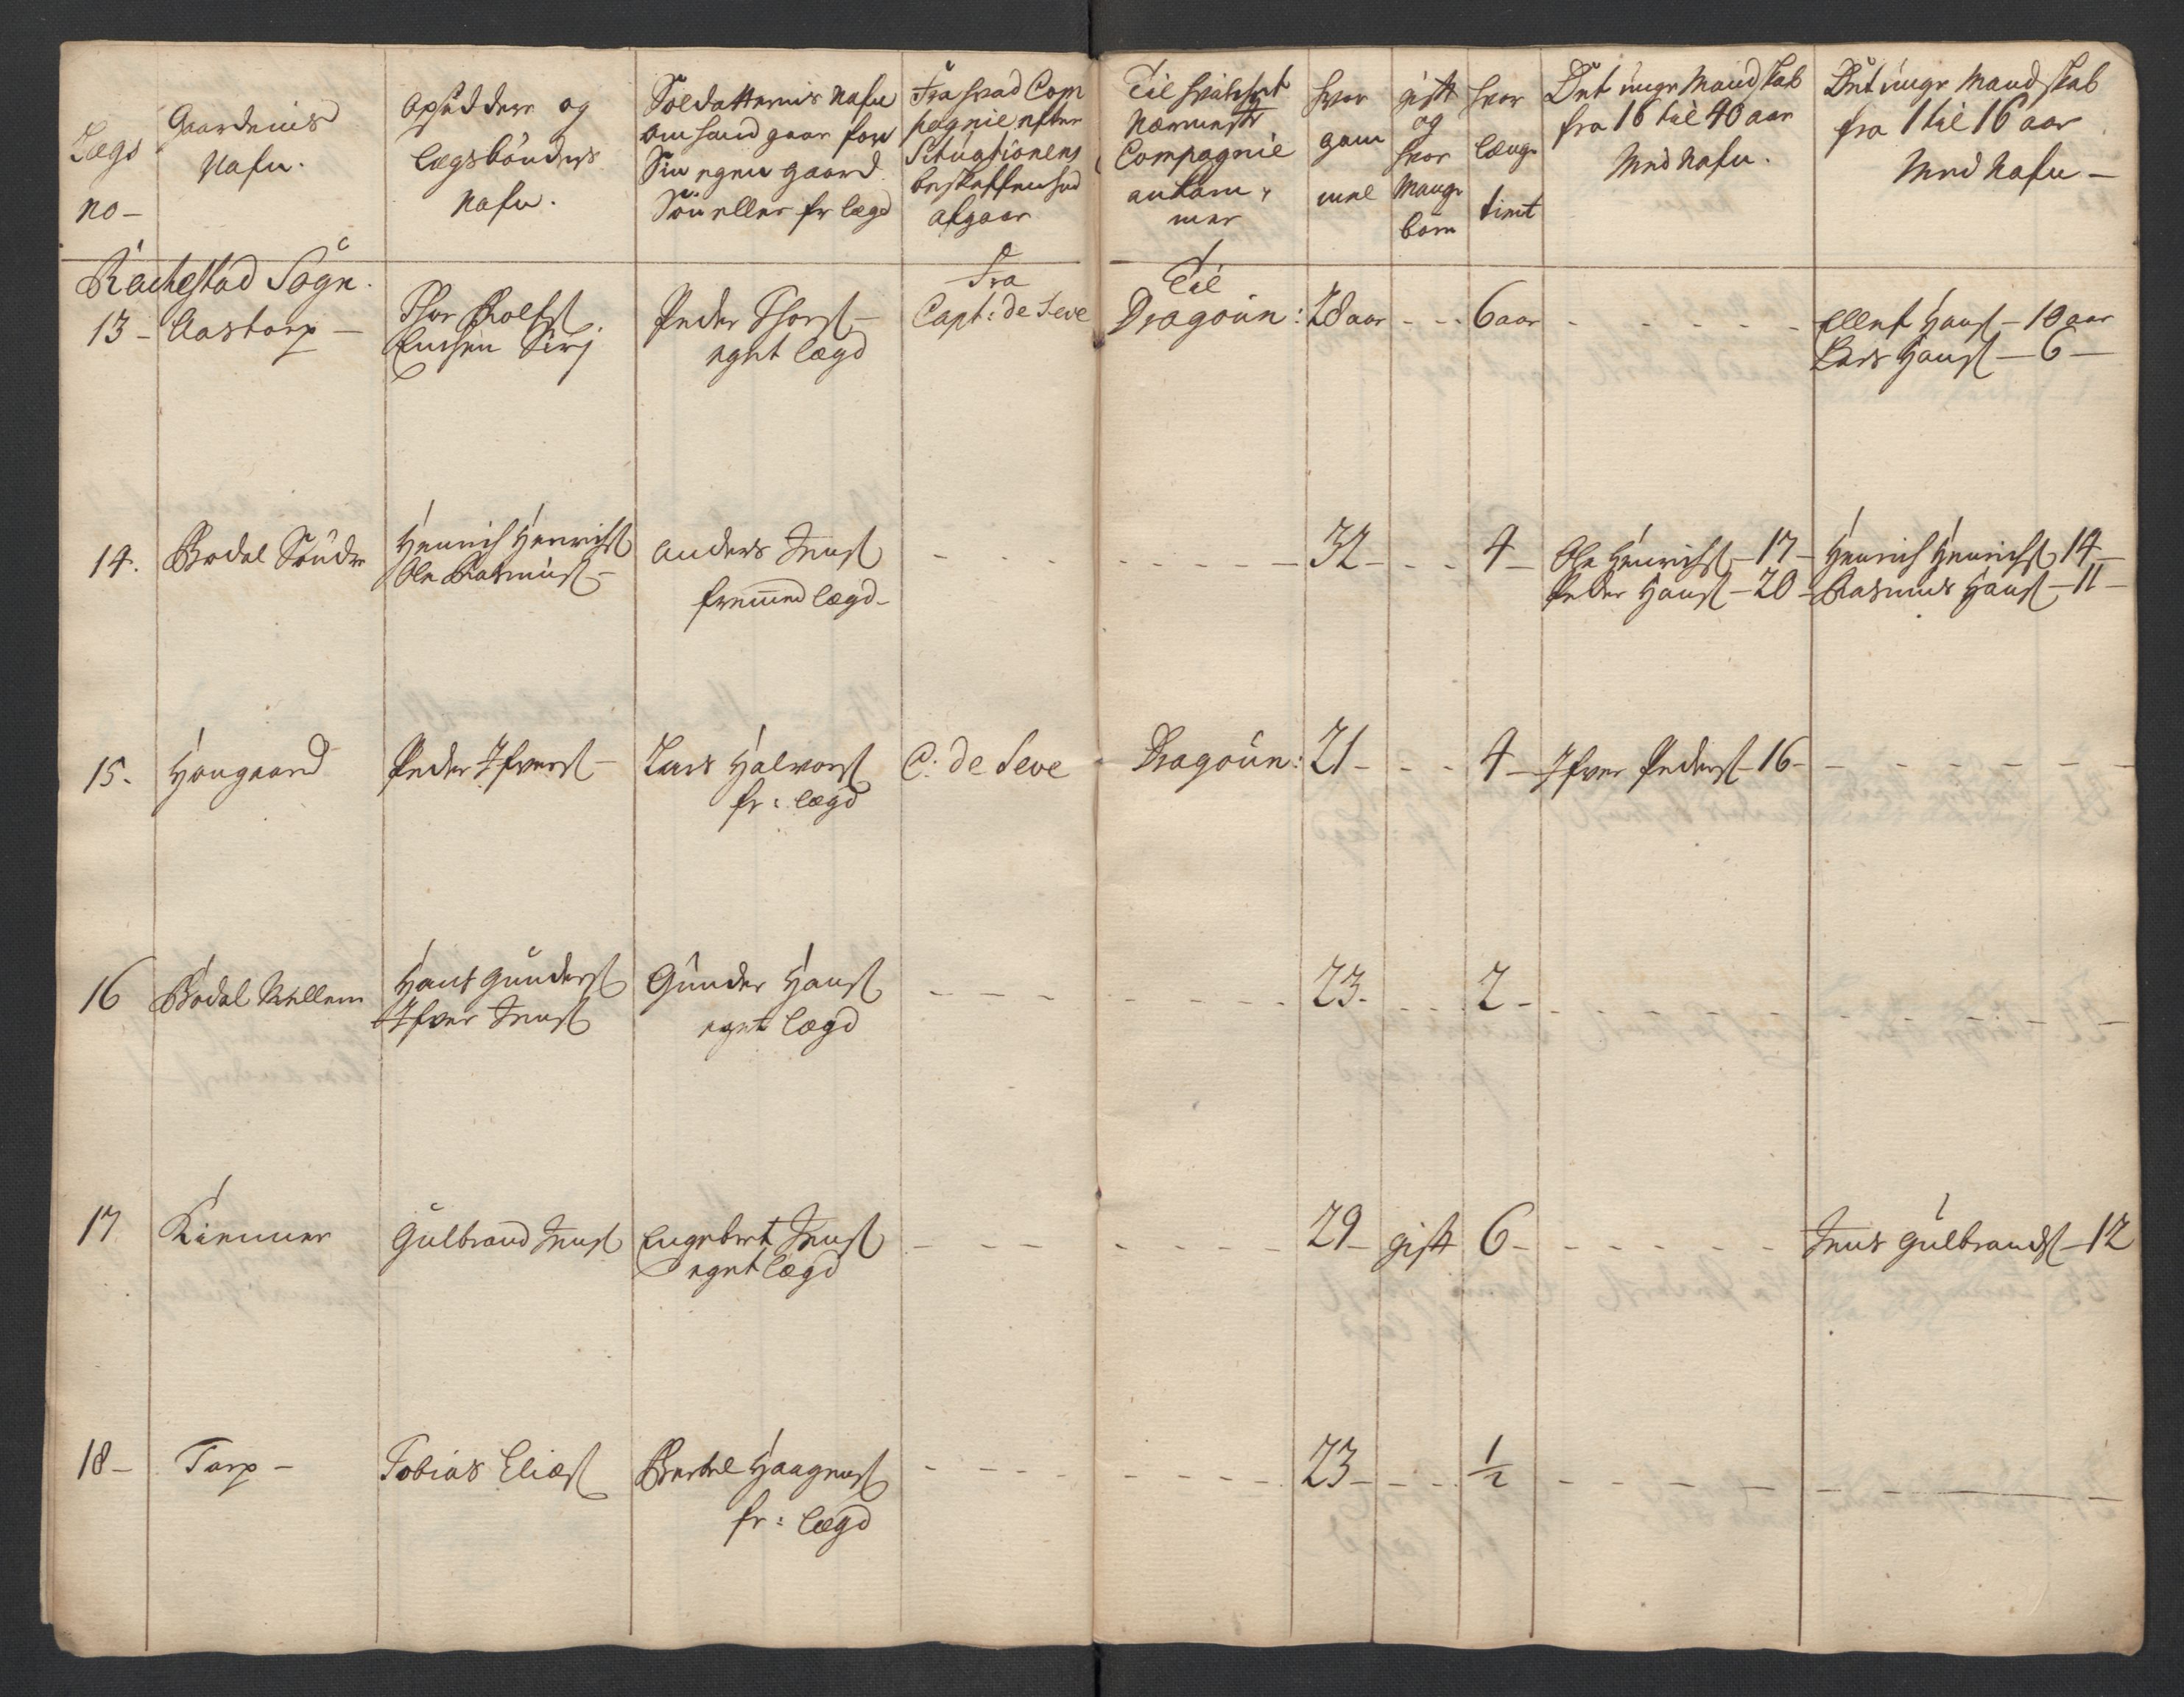 Lægs
no –
Gaardenis
Nafn.
Opsidder og
Lægsbönders
Nafn.
Soldatternis Nafn
om hand gaar for
Sin egen gaard
Sön eller fr lægd
Fra hvad Com
pagnie efter
Situationens
beskaffenhed
afgaar
Til hvilchet
Nærmeste
Compagnie
ankom,
mer
hvor
gam
mel
gift
og
hvor
Mange
börn
hvor
længe
tient
Det unge Mandskab
fra 16 til 40 aar
Med Nafn.
Det unge Mandskab
fra 1 til 16 aar
Med Nafn –
Rachestad Sogn.
13 – Aastorp –
Thor Rolfs
Peder Thors –
eget lægd
Fra
Capt: de Seve
Til
Dragoun: 28 aar - - - 6 aar - - - -
Ellef Hans – 10 aar
Lars Hans – 6 –
14. Bodal Söndre
Henrich Henrichs
Ole Rasmus –
Anders Jens
fremmed lægd –
32 – - - 4 –
Ole Henrichs – 17 –
Peder Hans – 20 –
Henrich Henrichs 14 –
Rasmus Hans – 11 –
15. Hougaard
Peder Ifvers –
Lars Halvors
fr: lægd
C: de Seve
Dragoun: 21 – - - 4 – Ifver Peders – 16 –
16 Bodal Mellem
Hans Gunders
Ifver Jens
Gunder Hans
eget lægd
23. - - - 2 –
17 Kiemmer
Gulbrand Jens
Engebret Jens
eget lægd
29 – gift 6 –
Jens Gulbrands – 12
18 – Torp –
Tobias Elias
Bertel Haagens
fr: lægd
23 – - - ½